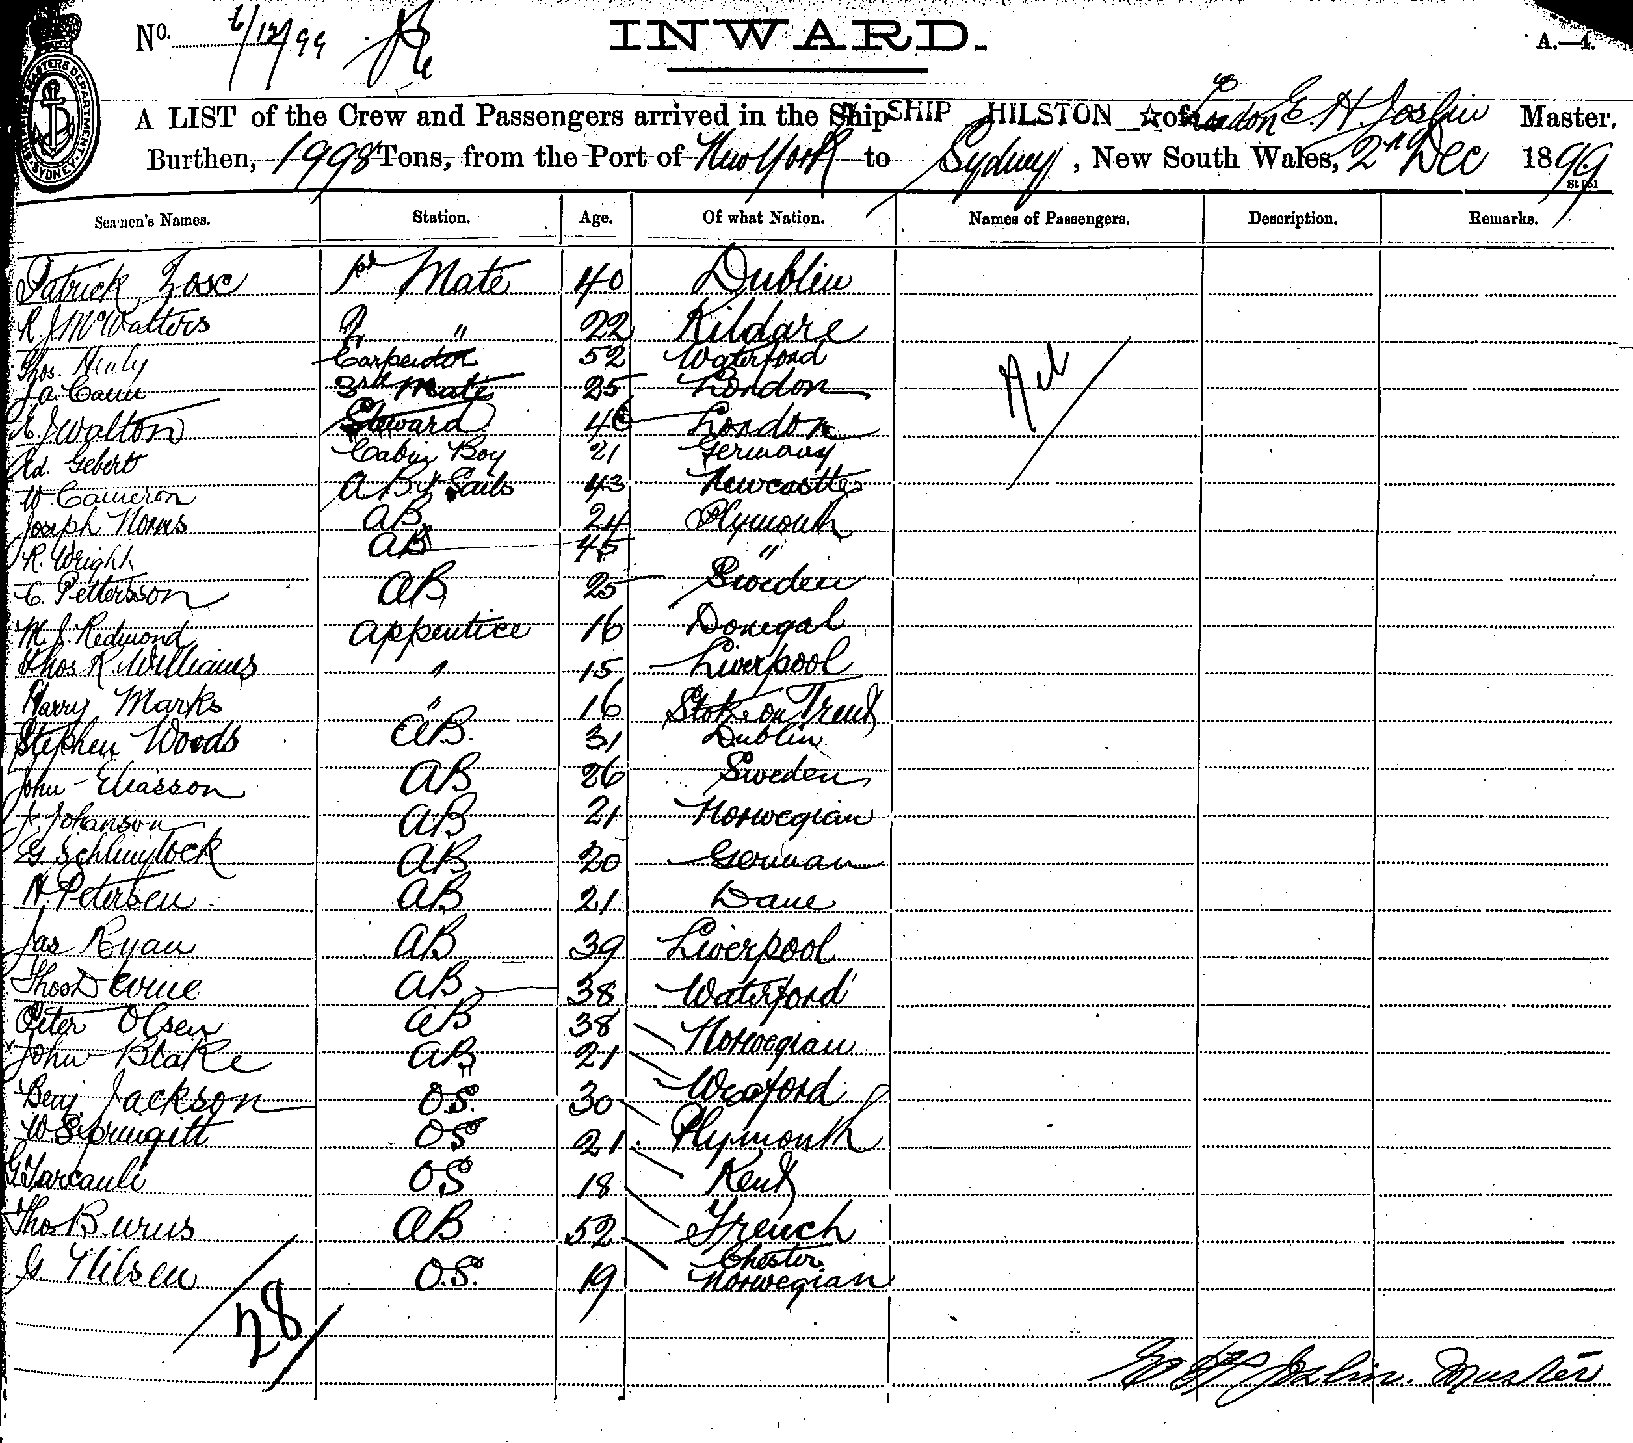 No. 6/12/99
INWARD.
A.—4.
A LIST of the Crew and Passengers arrived in the Ship SHIP HILSTON of London E. H. Joslin Master.
Burthen, 1998 Tons, from the Port of New York to Sydney, New South Wales, 2nd Dec 1899
Seamen's Names. Station. Age. Of what Nation. Names of Passengers. Description. Remarks.
Patrick 1st Mate 40 Dublin
R J McWalters 2 " 22 Kildare
Thos. Henly Carpenter 52 Waterford
Ja. Cann 3rd Mate 25 London
Nil
E J Walton Steward London
Ad. Gebert Cabin Boy 21 Germany
W. Cameron AB & Sails 43 Newcastle
Joseph Norris AB 24 Plymouth
R. Wright AB 45 "
C. Pettersson AB 25 Sweden
M. J. Redmond Apprentice 16 Donegal
Thos R Williams " 15 Liverpool
Harry Marks " 16 Stoke on Trent
Stephen Woods AB. 31 Dublin
John Eliasson AB 26 Sweden
J. Johanson AB 21 Norwegian
G AB 20 German
N. Petersen AB 21 Dane
Jas Ryan AB 39 Liverpool
Thos Devine AB 38 Waterford
Peter Olsen AB 38 Norwegian
John Blake AB 21 Wexford
Benj Jackson O.S. 30 Plymouth
W Springitt OS 21 Kent
G OS 18 French
Thos Burns AB 52 Chester
G Nilsen O.S. 19 Norwegian
28
E H Joslin. Master